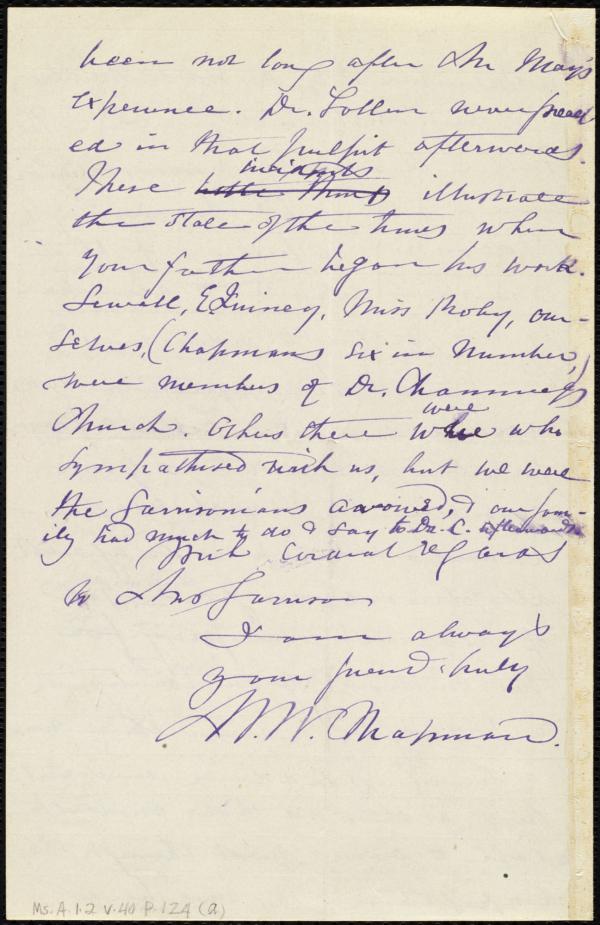 been not long after Mr May's
experience. Dr. Follen never preach
ed in that pulpit afterwards.
incidents
These little things illustrate
the state of the times when
your father began his work.
Sewall, E. Quincy, Miss Roby, our-
selves, (Chapmans six in number,)
were members of Dr. Channing's
were
Church. Others there who
sympathised with us, but we were
the Garrisonians avowed, & our fam-
ily had much to do & say to Dr. C. afterwards
With cordial regards
to Mrs Garrison
I am always
your friend truly
W. Chapman.
Ms. A. 1. 2 v. 40 P. 124 (a)